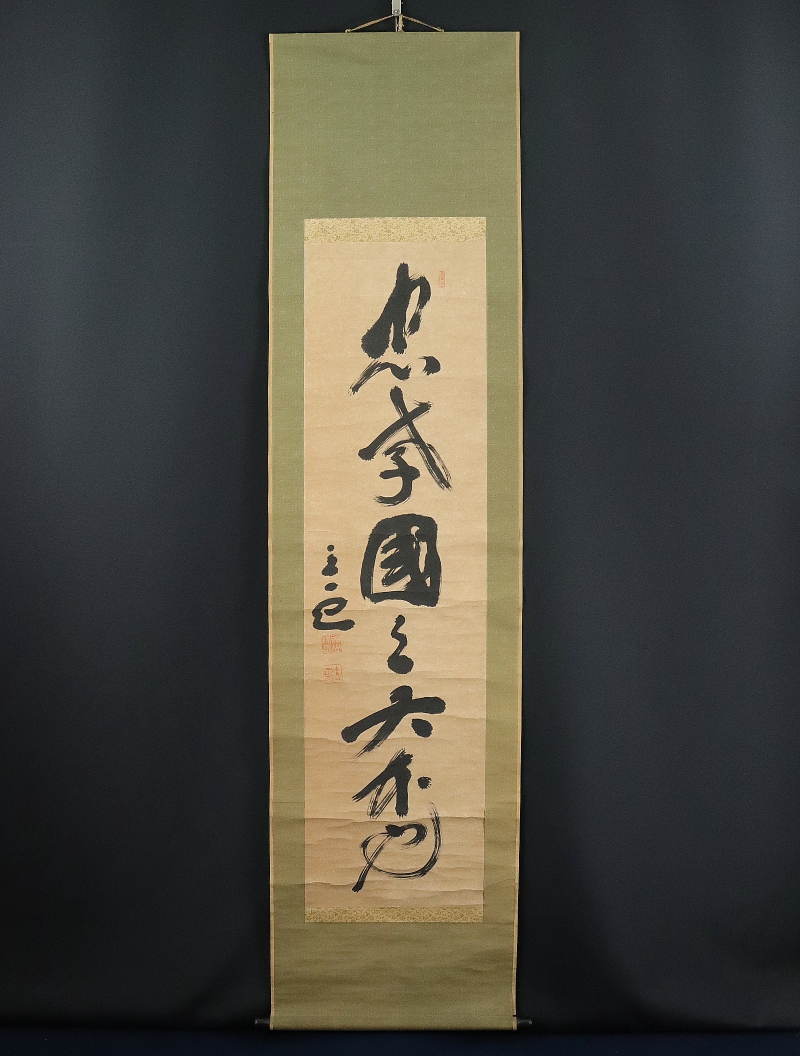 忠孝國之大本也